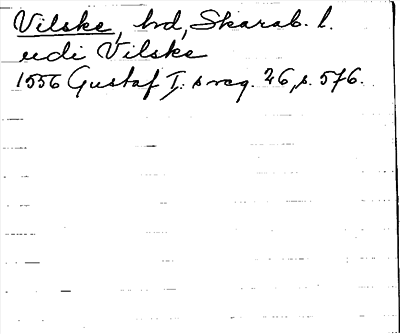 Vilske, hd, Skarab. l.
udi Vilske
1556 Gustaf I:s reg. 26, s. 576.